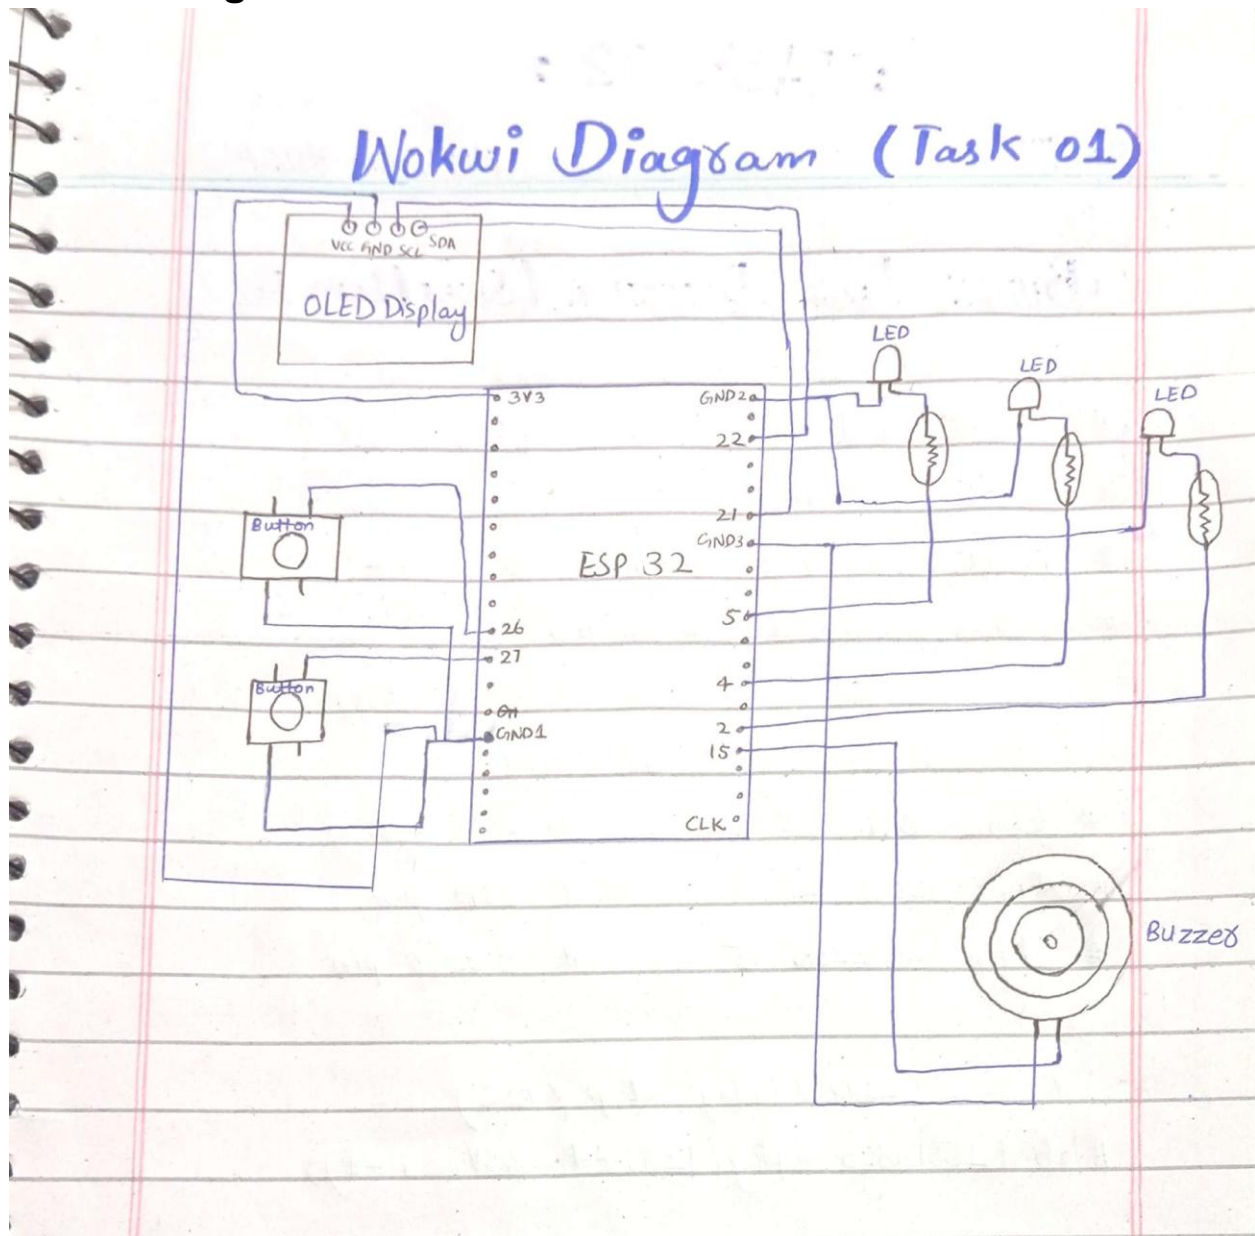 Wokwi Diagram (Task 01)
VCC GND SCL SDA
OLED Display
LED
LED
LED
3V3
GND2
22
21
GND3
Button
ESP 32
5
26
27
4
Button
GND1
2
15
CLK
Buzzer